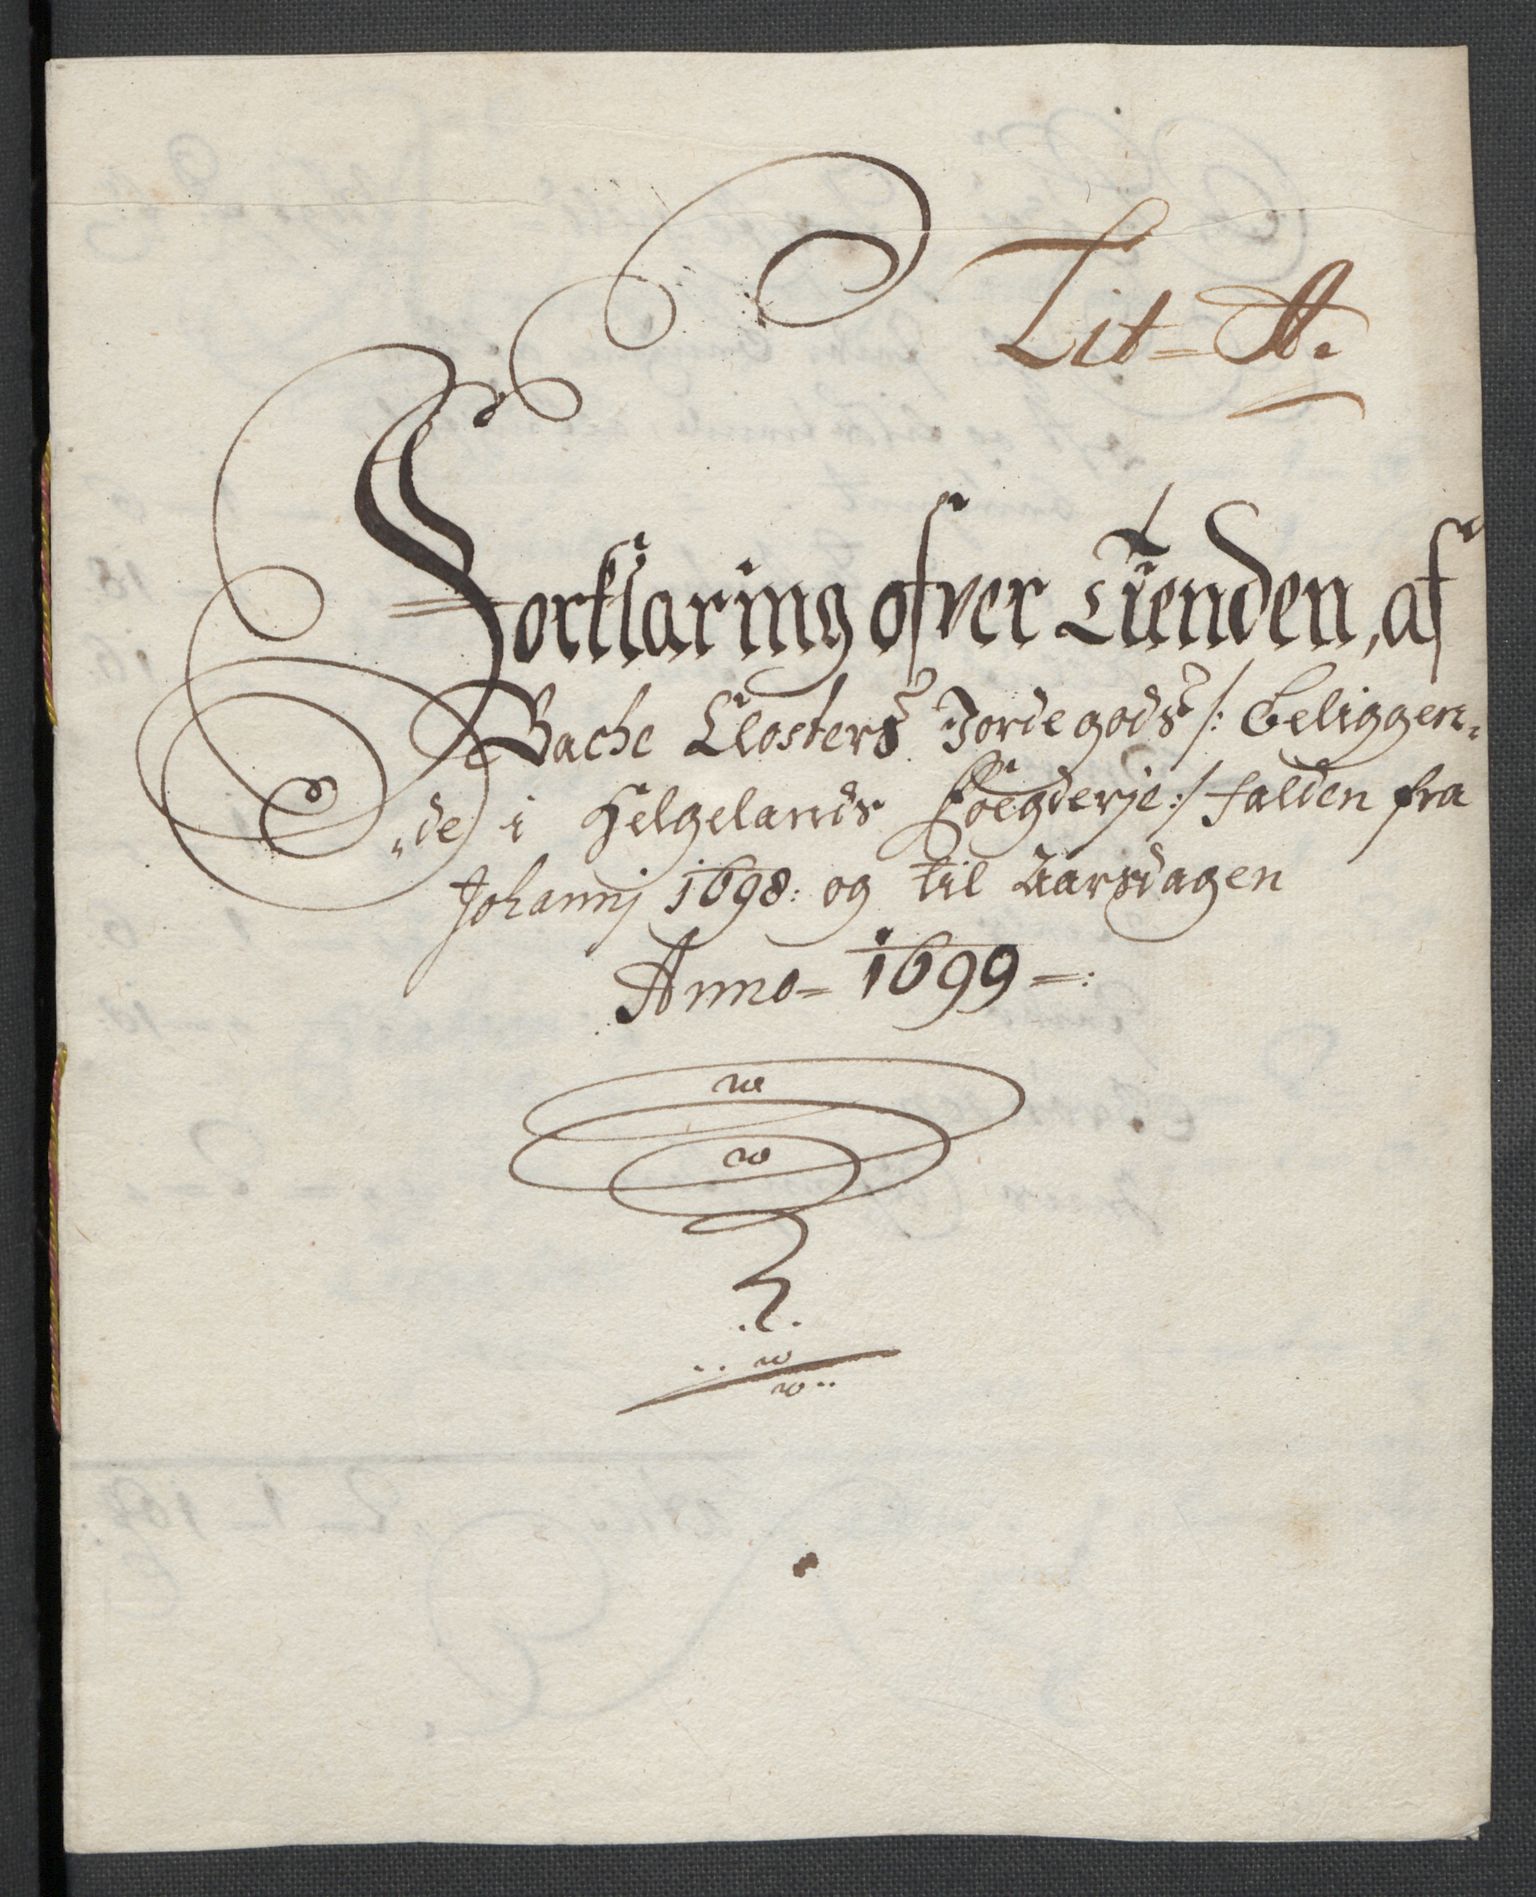 Lit= A.
Forklaring ofver Tienden, af
Bache Closters Jordegods /: beliggen„
„de i Helgelands Foegderje :/ falden fra
Johannj 1698: og til Aarsdagen
Anno= 1699=: